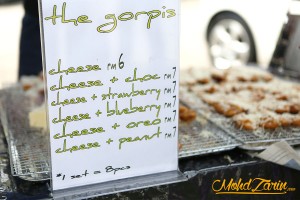 the gorpis
cheese RM 6
cheese + choc RM 7
cheese + strawberry RM 7
cheese + blueberry RM 7
cheese + oreo RM 7
cheese + peanut RM 7
*1 set = 8pcs
MohdZarin.com